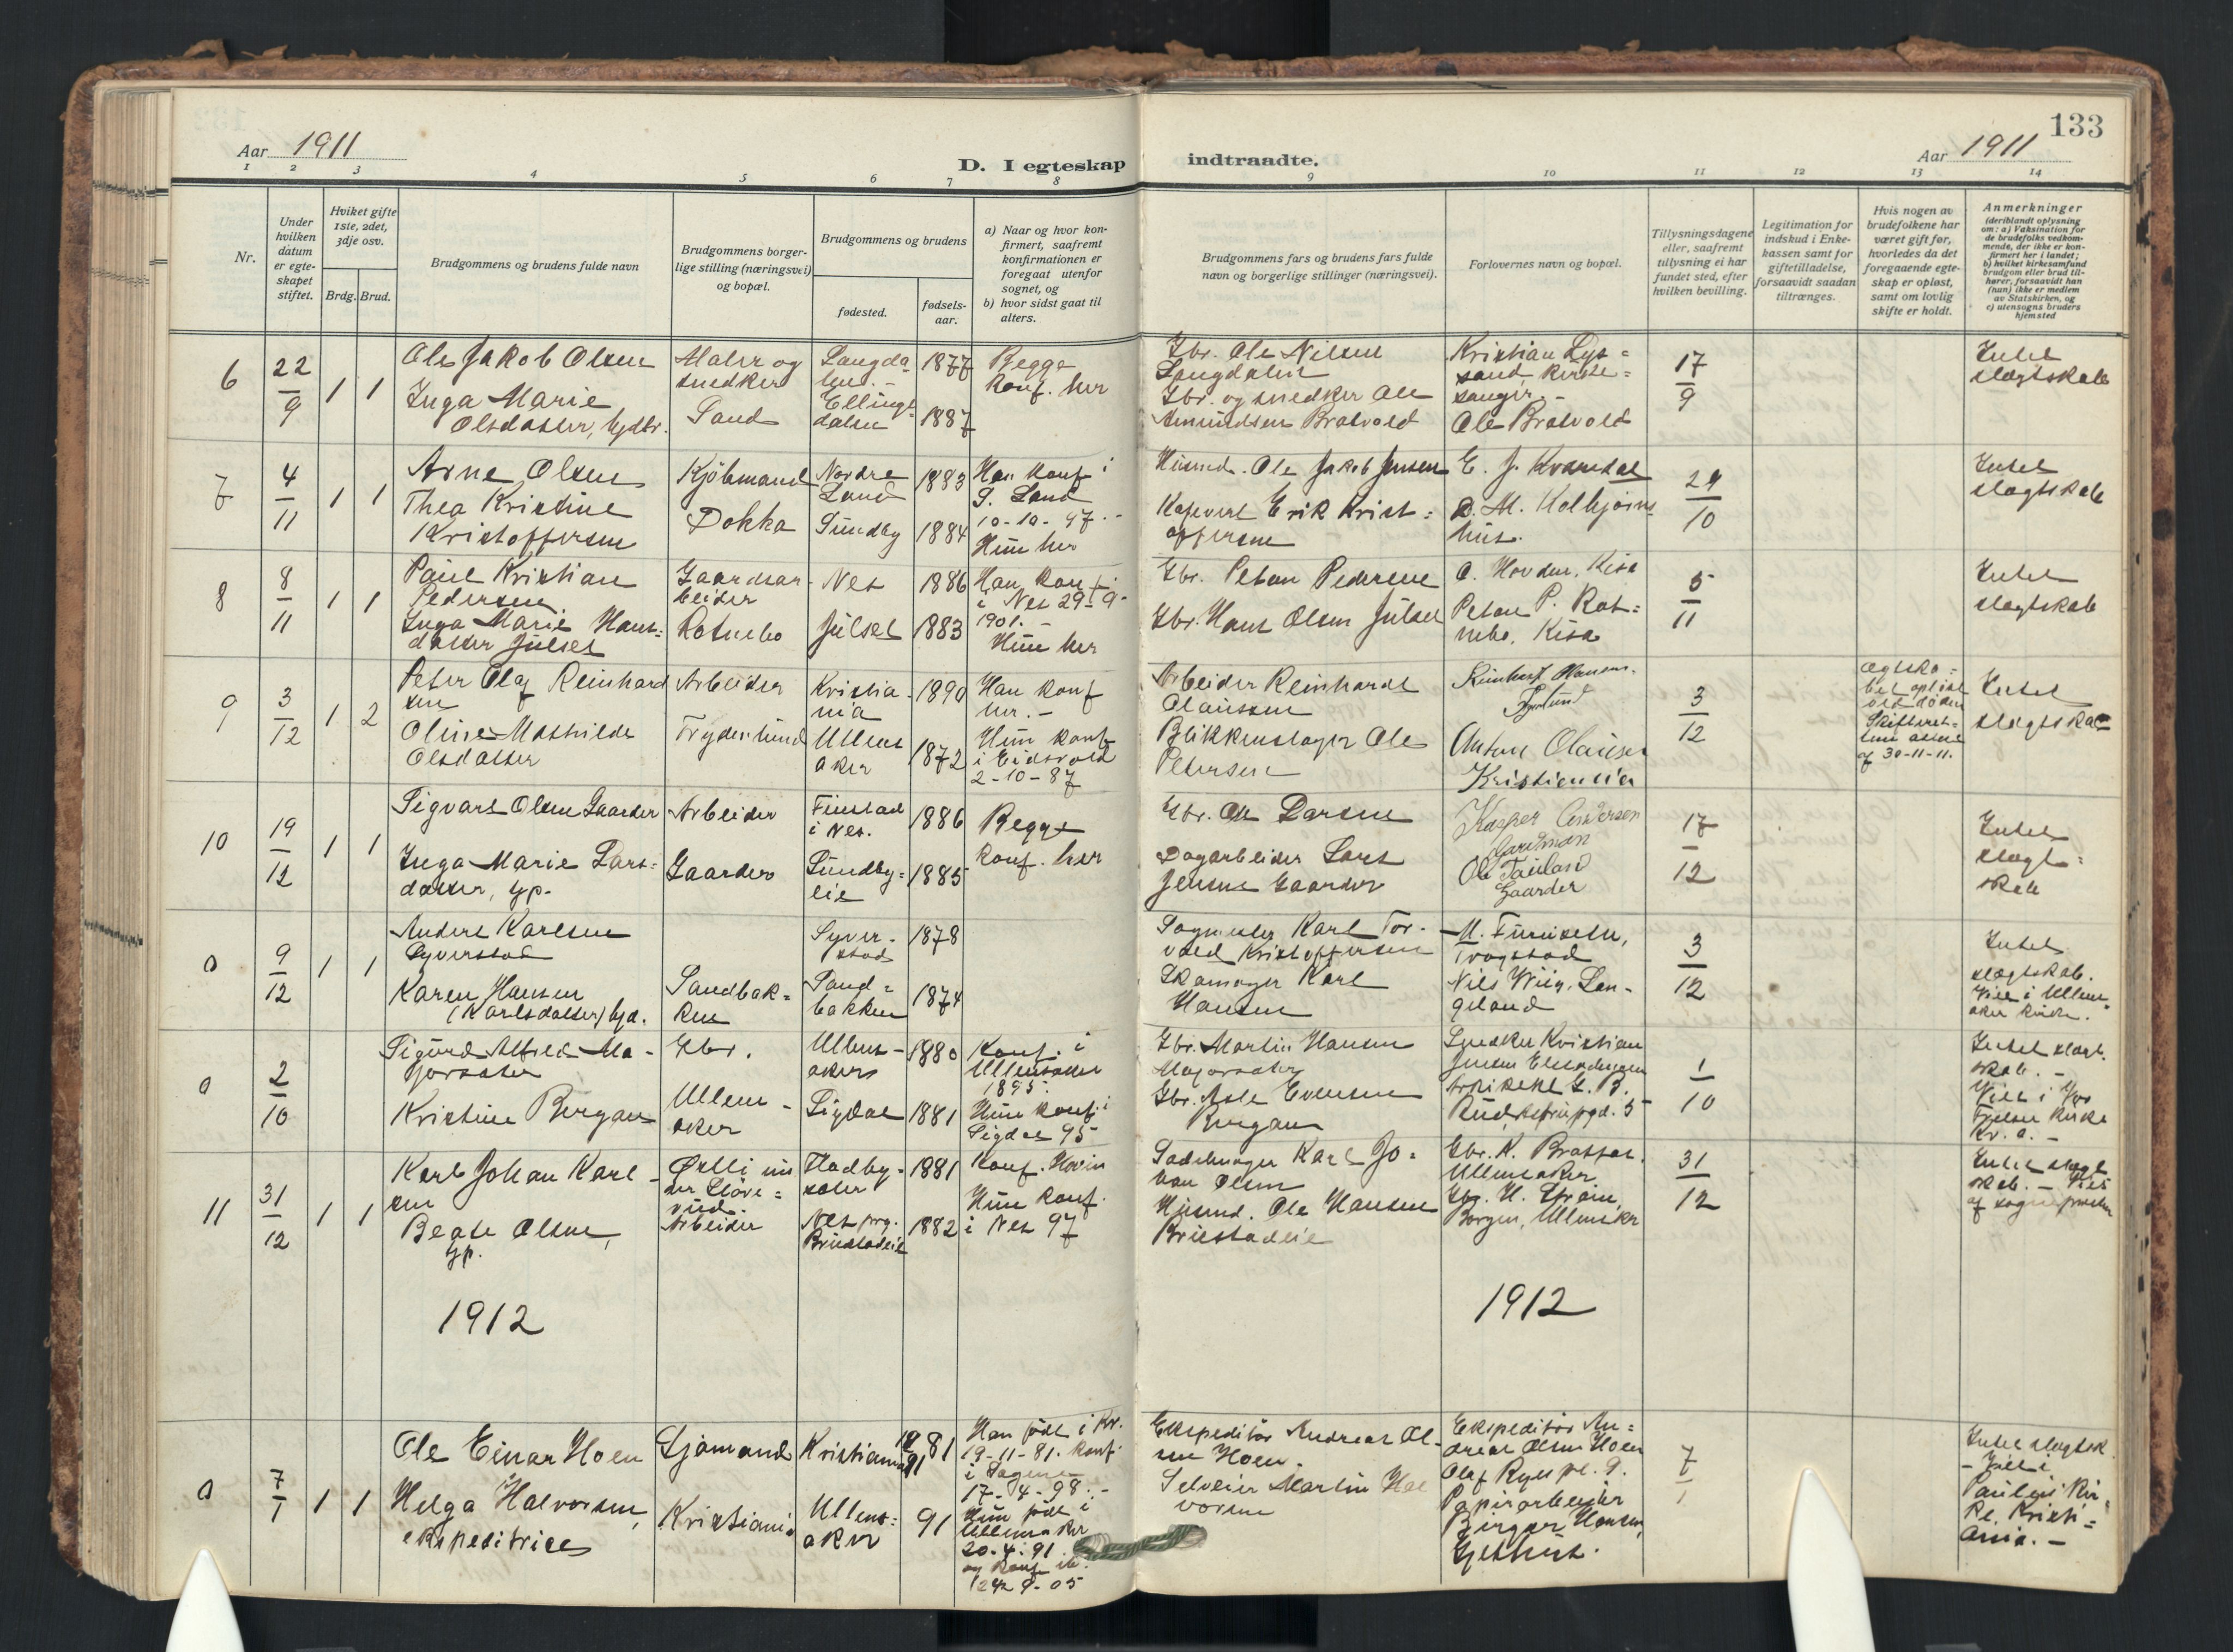 133
Aar 1911
D. I egteskap indtraadte.
Aar 1911
1 2 3 4 5 6 7 8 9 10 11 12 13 14
Nr.
Under
hvilken
datum
er egte-
skapet
stiftet.
Hvilket gifte
1ste, 2det,
3dje osv.
Brdg. Brud.
Brudgommens og brudens fulde navn
Brudgommens borger-
lige stilling (næringsvei)
og bopæl.
Brudgommens og brudens
fødested.
fødsels-
aar.
a) Naar og hvor kon-
firmert, saafremt
konfirmationen er
foregaat utenfor
sognet, og
b) hvor sidst gaat til
alters.
Brudgommens fars og brudens fars fulde
navn og borgerlige stillinger (næringsvei).
Forlovernes navn og bopæl.
Tillysningsdagene
eller, saafremt
tillysning ei har
fundet sted, efter
hvilken bevilling.
Legitimation for
indskud i Enke-
kassen samt for
giftetilladelse,
forsaavidt saadan
tiltrænges.
Hvis nogen av
brudefolkene har
været gift før,
hvorledes da det
foregaaende egte-
skap er opløst,
samt om lovlig
skifte er holdt.
Anmerkninger
(deriblandt oplysning
om: a) Vaksination for
de brudefolks vedkom-
mende, der ikke er kon-
firmert her i landet;
b) hvilket kirkesamfund
brudgom eller brud til-
hører, forsaavidt han
(hun) ikke er medlem
av Statskirken, og
c) utensogns bruders
hjemsted
6
22
9
1 1
Ole Jakob Olsen
Inga Marie
Olsdatter, Gdbr.
Maler og
snedker
Sand
Langda
len. -
Ellings-
dalen
1877
1887
Begge
konf. her
Gbr. Ole Nilsen
Langdalen
Gbr. og snedker Ole
Amundsen Bratvold
Kristian Lys=
sand, kirke=
sanger. -
Ole Bratvold
17
9
Intet
slægtskab
7
4
11
1 1
Arne Olsen
Thea Kristine
Kristoffersen
Kjöbmand
Dokka
Nordre
Land
Sundby
1883
1884
Han konf i
S. Land
10-10-97. -
Hun her
Husmd. Ole Jakob Jensen
Erik Krist=
offersen
E. J. Kværndal
D. M. Kolbjörns
hus.
29
10
Intet
slægtskab
8
8
11
1 1
Paul Kristian
Pedersen
Inga Marie Hans=
datter Julset
Gaardsar-
beider
Rotnebo
Nes
Julset
1886
1883
Han konf.
i Nes 29-9-
1901. -
Hun her
Gbr. Petan Pedersen
Gbr. Hans Olsen Julset
O. Hovden, Kisa
Petan P. Rot=
nebo, Kisa
5
11
Intet
slægtskab
9
3
12
1 2
Peter Olaf Reinhard
sen
Oline Mathilde
Olsdatter
Arbeider
Frydenlund
Kristia-
nia
Ullens
aker
1890
1872
Han konf
her. -
Hun konf
i Eidsvold
2-10-87
Arbeider Reinhardt
Olaussen
Blikkenslager Ole
Petersen
Reinhart Hansen.
Anton Olausen
Kristiania
3
12
Ægteska=
bet opløst
ved döden
Skifteret=
tens attest
af 30-11-11.
Intet
slægtskab
10
19
12
1 1
Sigvart Olsen Gaarder
Inga Marie Lars=
datter, Gp.
Arbeider
Gaarder
Finstad
i Nes.
Sundby=
eie
1886
1885
Begge
konf. her
Gbr. Ole Larsen
Dagarbeider Lars
Jensen Gaarder
Kasper Andersen
Gardman
Ole Tauland
Gaarder
17
12
Intet
slægt=
skab
0
9
12
1 1
Anders Karlsen
Syverstad
Karen Hansen
(Karlsdatter) Gjd.
Sandbak=
ken
Syver-
stad
Sand=
bakken
1878
1874
Karl Tor-
vald Kristoffersen
Skomager Karl
Hansen
M. Furuseth,
Trögstad
Nils Wiig, Lan-
geland
3
12
Intet
slægtskab.
Viet i Ullens
aker kirke.
0
2
10
Sigurd Alfred Ma-
jorsater
Kristine Bergan
Gbr.
Ullens-
aker
Ullens-
aker
Sigdal
1880
1881
Konf. i
Ullensaker
1895.
Hun konf i
Sigdal 95
Gbr. Martin Hansen
Majorsater
Gbr. Asle Evensen
Bergan
Snedker Kristian
Jensen
Rud,
1
10
Intet slægt-
skab. -
Viet i Vor
Frelsers Kirke
Kr.a. -
11
31
12
1 1
Karl Johan Karl-
sen
Beate Olsen,
Gp.
Arbeider
Fladby-
sater
Nes prg.
Brustadeie
1881
1882
Konf. Hovin
Hun konf.
i Nes 97
Sadelmager Karl Jo=
han Olsen
Husmd. Ole Hansen
Brustadeie
Gbr. K.
Ullensaker
Gbr. H.
Borgen, Ullensaker
31
12
Intet slægt
skab. - Viet
af sognepresten
1912
1912
0
7
1
1 1
Ole Einar Hoen
Helga Halvorsen,
ekspeditrice
Sjömand
Kristiania
Kristiania
Ullens=
aker
81
91
91
Han födt i Kr.
19-11-81. Konf.
i Sagene
17-4-98. -
Hun födt i
Ullensaker
20-4-91.
og konf.
9-05
Ekspeditör Andreas Ol-
sen Hoen.
Selveier Martin Hal
vorsen
Ekspeditör An=
dreas Olsen Hoen
Olaf Ryes pl. 9.
Papirarbeider
Birger Hansen,
Gjethus.
7
1
Intet slægtsk
- Viet i
Paulus Kir
ke, Kristi=
ania. -